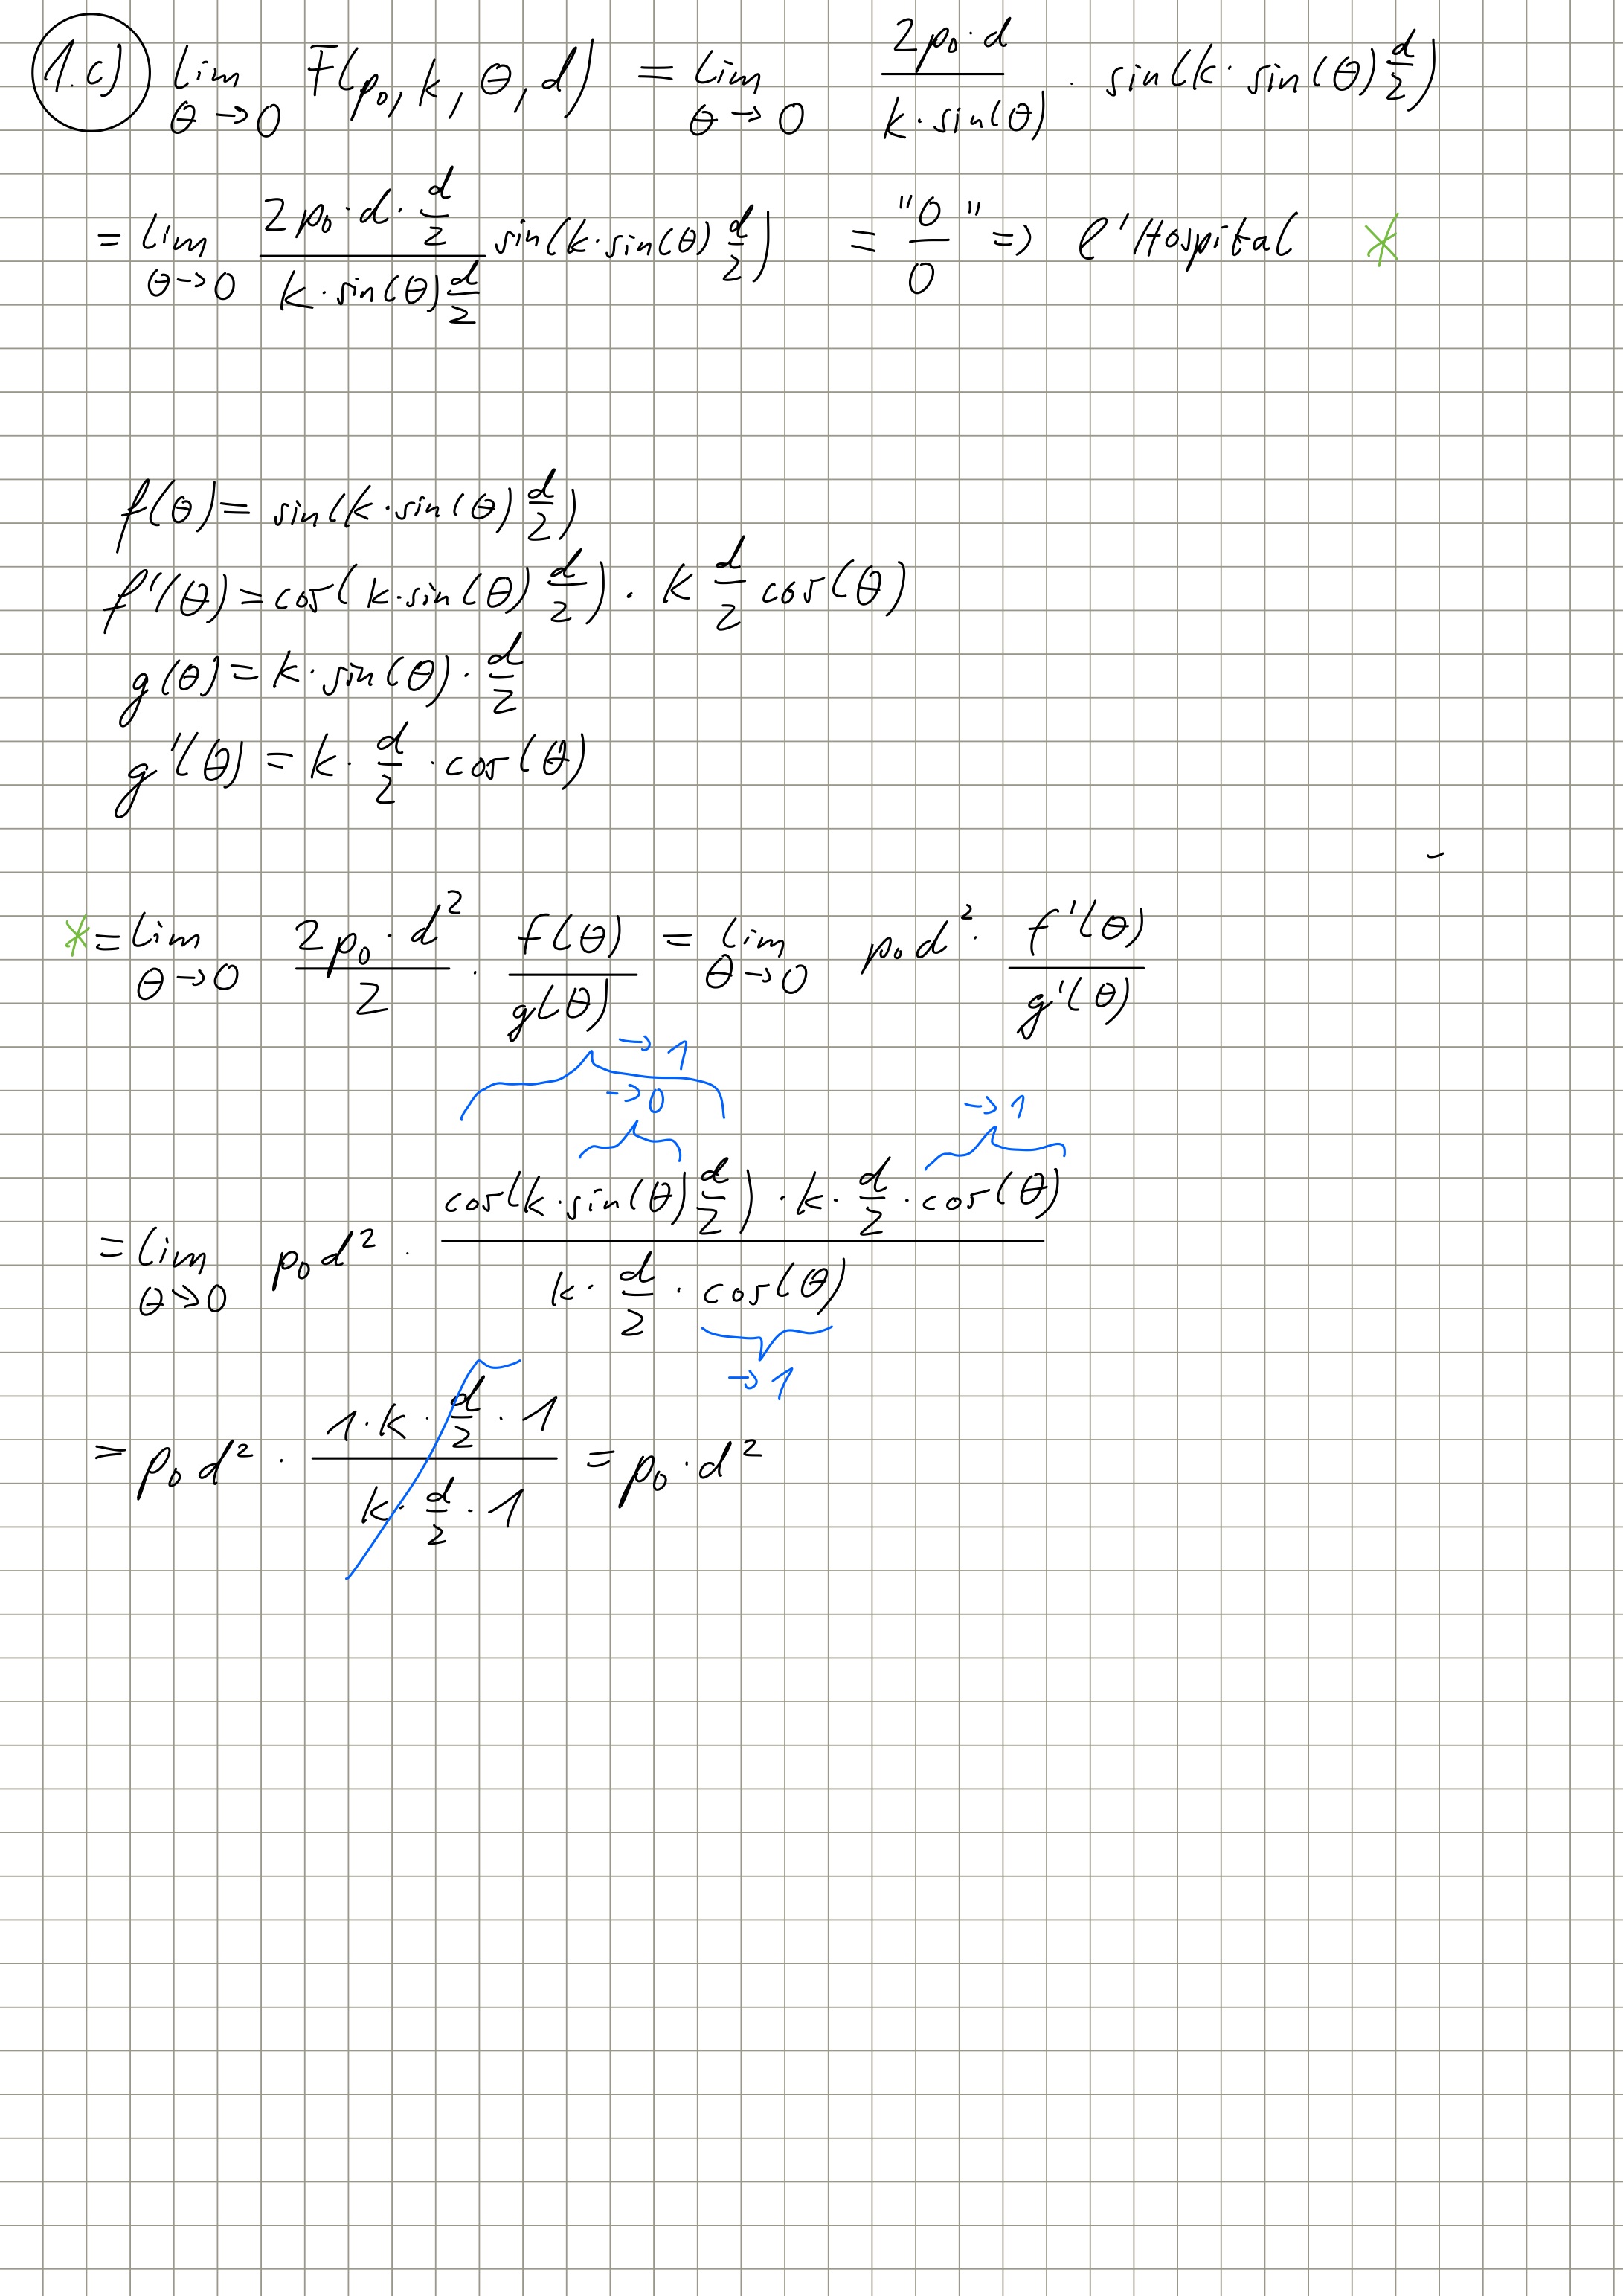 1.c) lim_{θ→0} F(p₀, k, θ, d) = lim_{θ→0} \frac{2p₀·d}{k·sin(θ)} · sin(k·sin(θ) \frac{d}{2})
= lim_{θ→0} \frac{2p₀·d·\frac{d}{2}}{k·sin(θ)\frac{d}{2}} sin(k·sin(θ) \frac{d}{2}) = "\frac{0}{0}" ⇒ l'Hospital *
f(θ) = sin(k·sin(θ) \frac{d}{2})
f'(θ) = cos(k·sin(θ) \frac{d}{2}) · k \frac{d}{2} cos(θ)
g(θ) = k·sin(θ)·\frac{d}{2}
g'(θ) = k·\frac{d}{2}·cos(θ)
* = lim_{θ→0} \frac{2p₀·d²}{2} · \frac{f(θ)}{g(θ)} = lim_{θ→0} p₀d²·\frac{f'(θ)}{g'(θ)}
→1
→0 →1
= lim_{θ→0} p₀d² · \frac{cos(k·sin(θ)\frac{d}{2})·k·\frac{d}{2}·cos(θ)}{k·\frac{d}{2}·cos(θ)}
→1
= p₀d² · \frac{1·k·\frac{d}{2}·1}{k·\frac{d}{2}·1} = p₀·d²